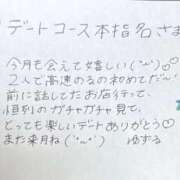 デートコース本指名さま
今月も会えて嬉しい(¨)♡
2人で高速のるの初めてだ(¨)
前に話してたお店行って、
恒例のガチャガチャ見て、
とっても楽しいデートありがとう♡
また来月ね(¨) ゆずる